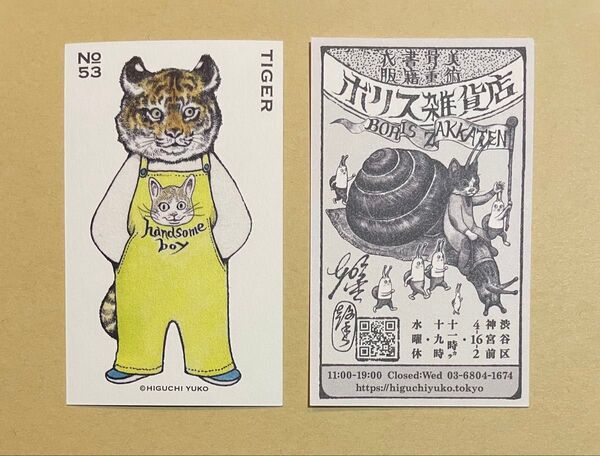 No
53
TIGER
handsome
boy
©HIGUCHI YUKO
美術
骨董
書籍
衣服
ボリス雑貨店
BORIS ZAKKATEN
渋谷区
神宮前
4-16-2
十一時カラ
十九時
水曜休
11:00-19:00 Closed:Wed 03-6804-1674
https://higuchiyuko.tokyo